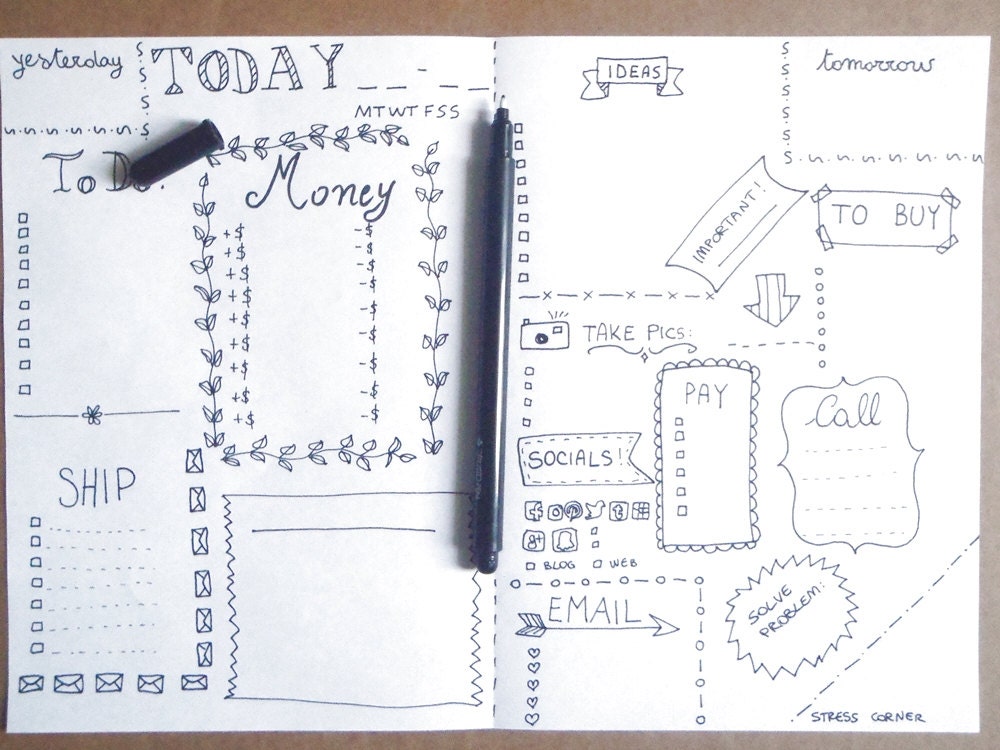 yesterday
TODAY
MTWTFSS
To Do:
Money
+$ -$
+$ -$
+$ -$
+$ -$
+$ -$
+$ -$
+$ -$
+$ -$
+$ -$
SHIP
IDEAS
tomorrow
IMPORTANT!
TO BUY
TAKE PICS:
PAY
Call
SOCIALS!
g+
BLOG WEB
EMAIL
SOLVE
PROBLEM:
STRESS CORNER